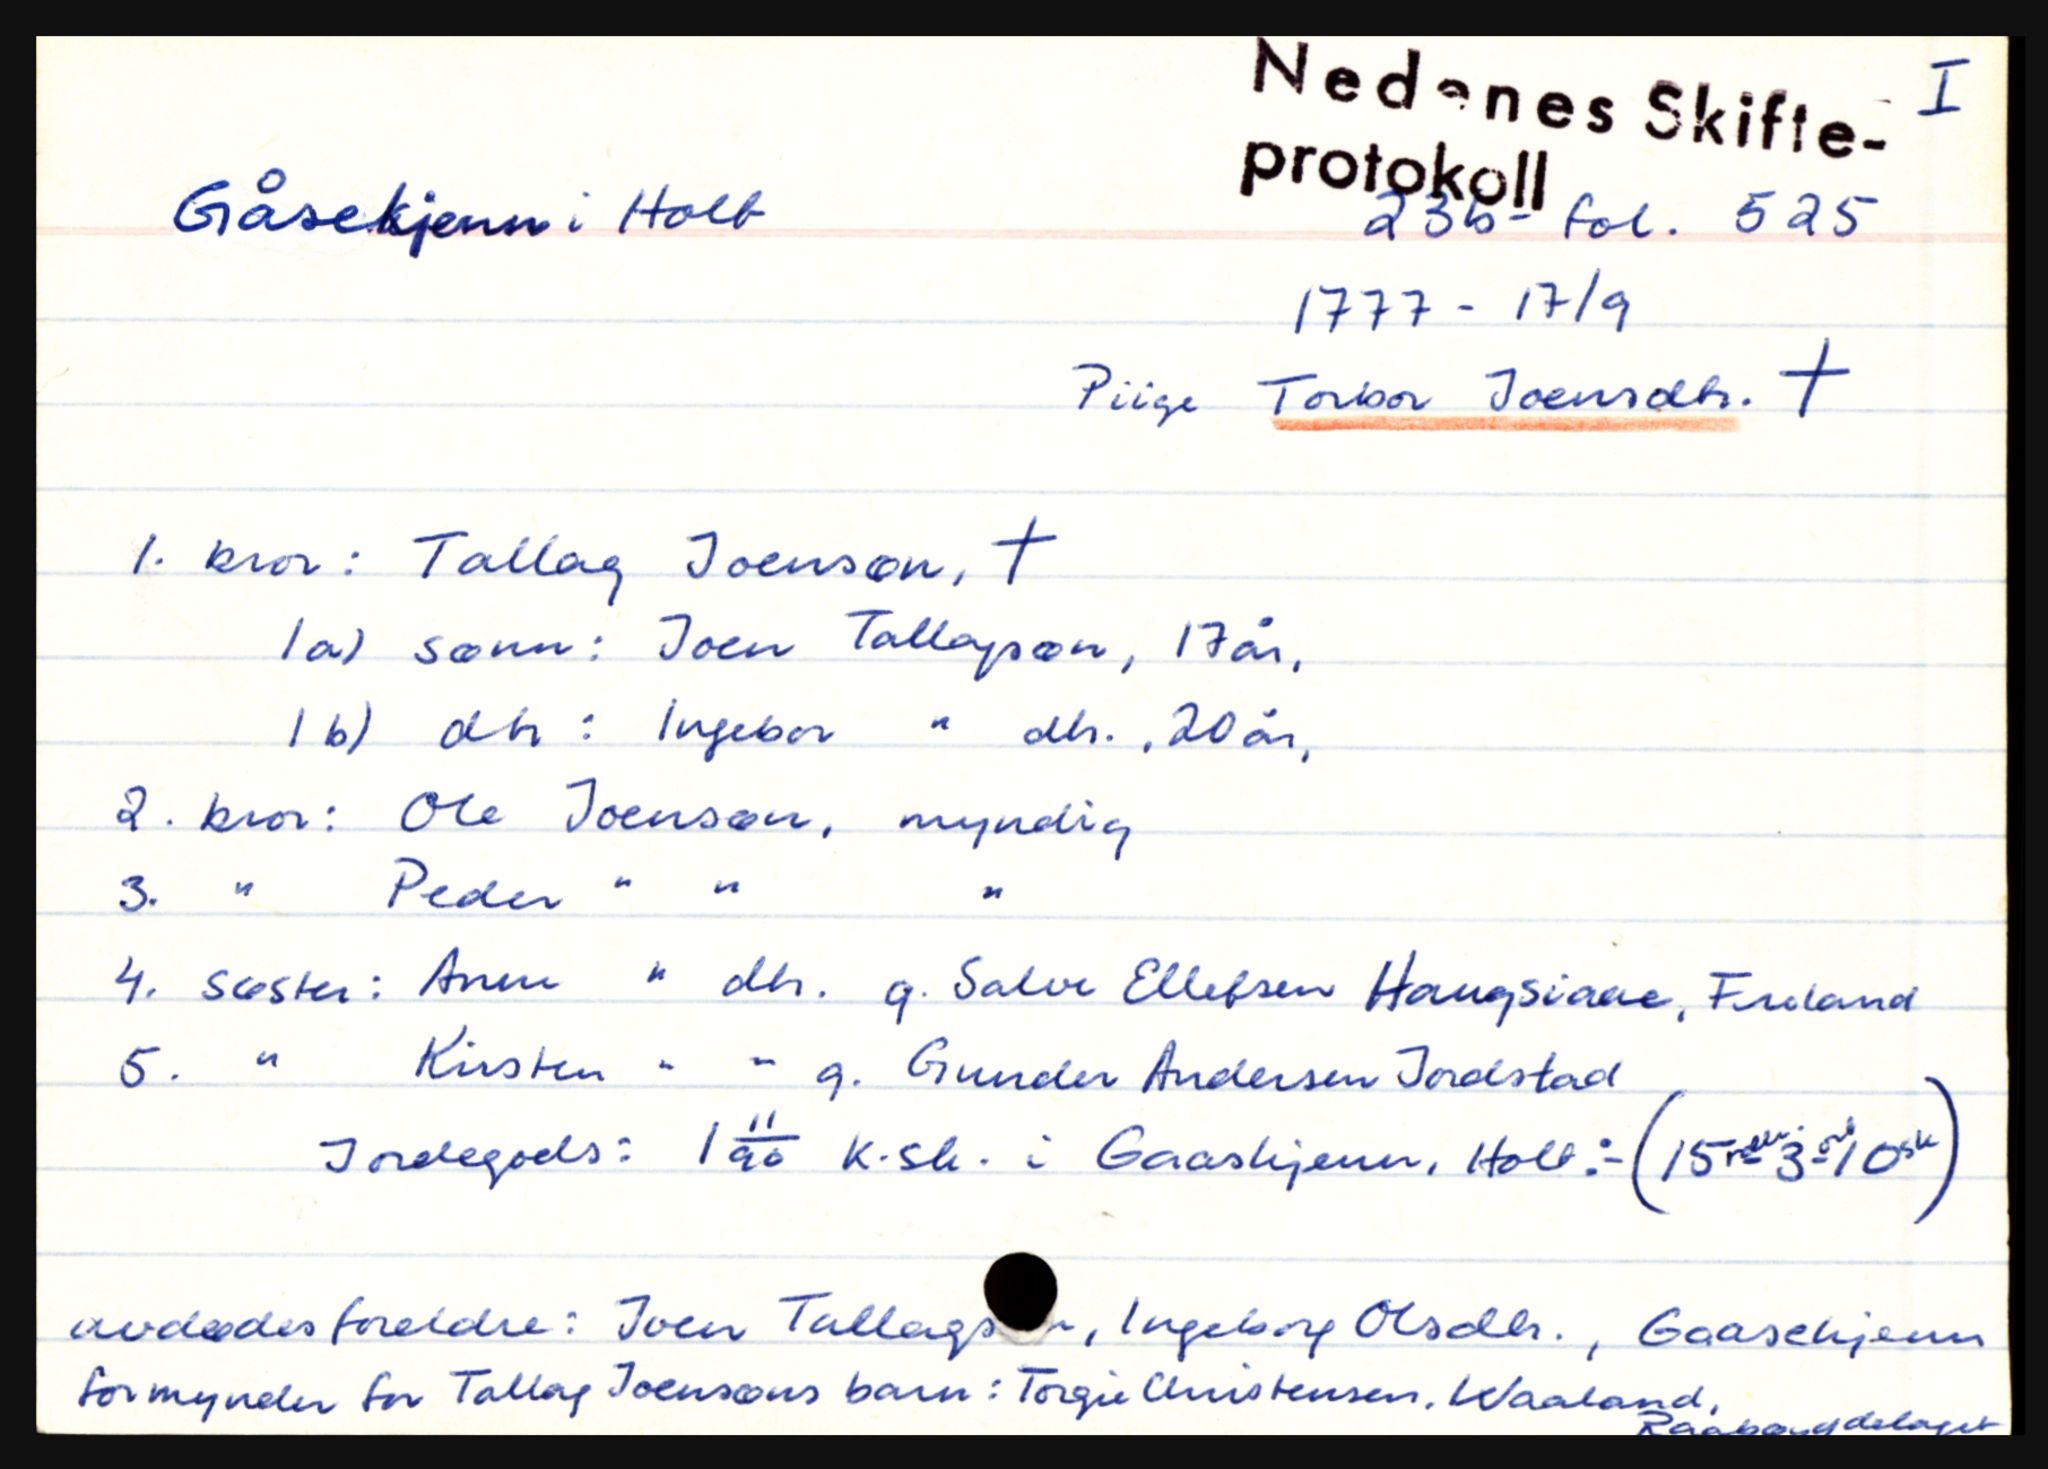 Nedenes Skifte-
protokoll
I
Gåsekjenn i Holt
23b - fol. 525
1777 - 17/9
Piige Torbor Joensdtr. †
1. bror: Tallag Joensøn, †
1a) sønn: Joen Tallagsøn, 17 år,
1b) dtr: Ingebor " dtr., 20 år,
2. bror: Ole Joensøn, myndig
3. " Peder " " "
4. søster: Anne " dtr. g. Salve Ellefsen Haugsiaae, Froland
5. " Kirsten " " g. Gunder Andersen Jordstad
Jordegods: 1 11/90 k.sk. i Gaaskjenn, Holt :- (15 rdlr 3 ort 10 sk)
avdødes foreldre: Joen Tallagsøn, Ingeborg Olsdtr., Gaasekjenn
formynder for Tallag Joensøns barn: Torgie Christensen, Waaland,
Raabøygdelaget